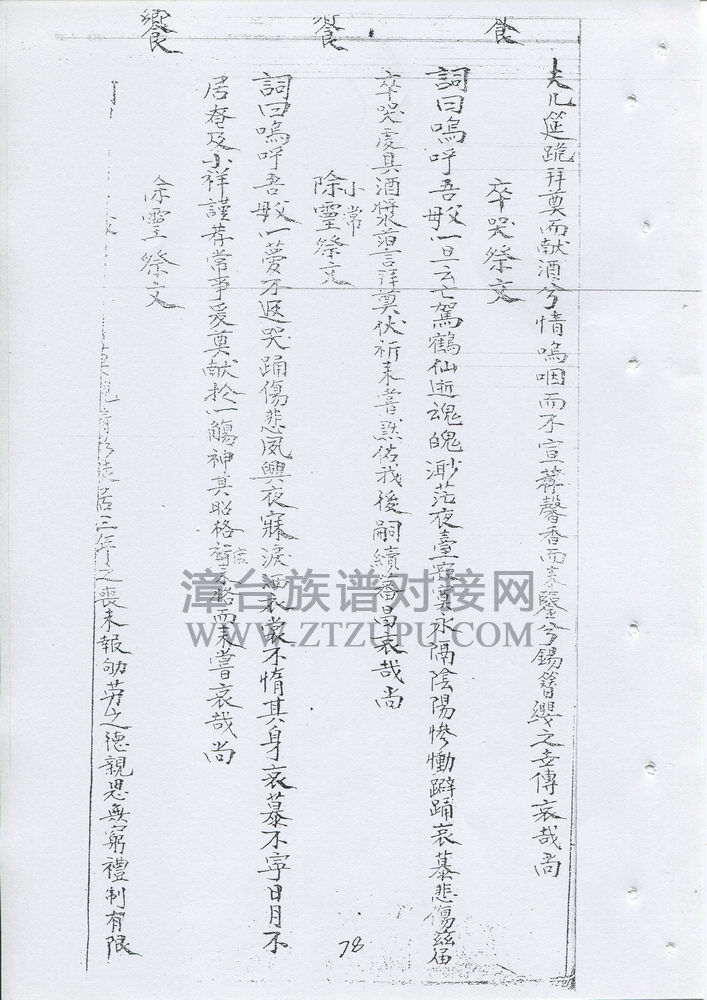 夫几筵跪拜奠而献酒兮情嗚咽而不宣荐馨香而來鑒兮錫簪纓之世傳哀哉尚
食
卒哭祭文
詞曰嗚呼吾母父一旦云亡駕鶴仙逝魂魄渺茫夜臺寂寞永隔陰陽慘慟擗踊哀慕悲傷茲届
卒哭虔具酒漿泪言拜奠伏祈來嘗默佑我後嗣續蕃昌哀哉尚
饗
小常
除靈祭文
詞曰嗚呼吾母父一夢不返哭踊傷悲夙興夜寐淚沾衣裳不惰其身哀慕不寧日月不
居奄及小祥謹荐常事爰奠献扵一觴神其昭格來格而來嘗哀哉尚
饗
除靈祭文
居三年之喪未報劬劳之德親思無窮禮制有限
78
漳台族谱对接网
WWW.ZTZUPU.COM